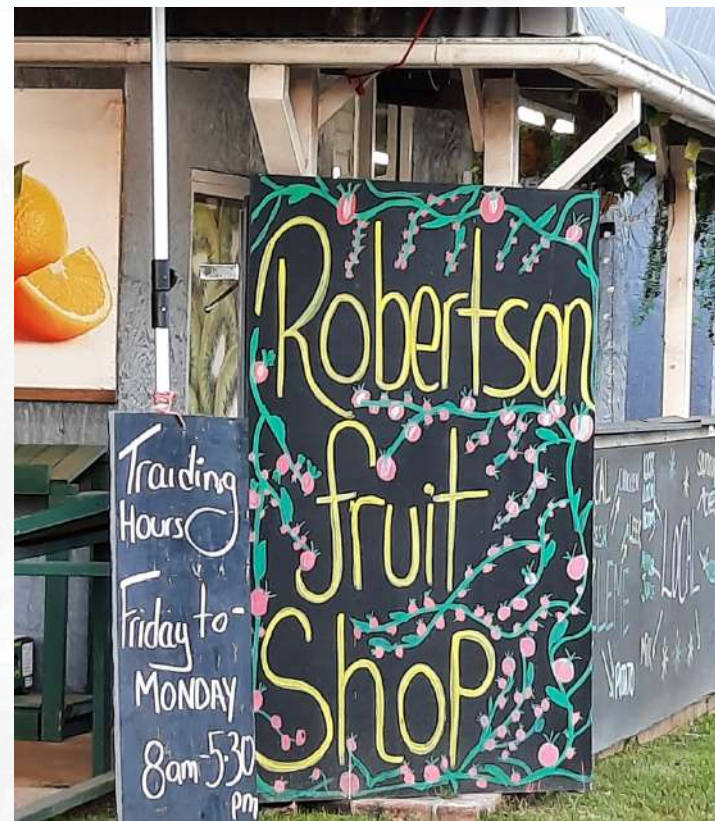 Robertson
fruit
Shop
Traiding
Hours
Friday to-
MONDAY
8am-5.30
pm
LOCL